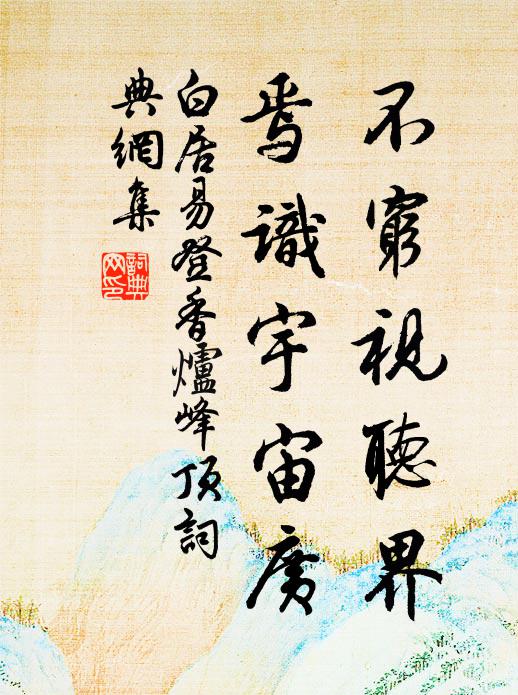 不窮視聽界
焉識宇宙廣
白居易登香爐峰頂詞
典網集
詞典
网印